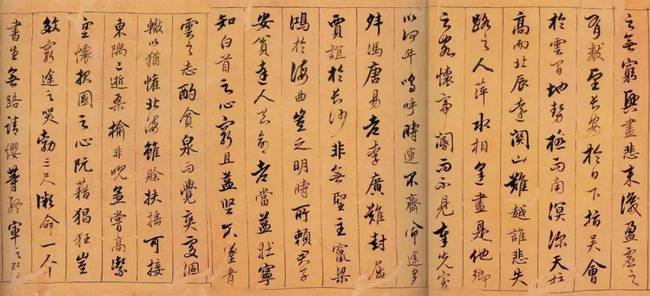 之無窮興盡悲來識盈虛之
有數望長安於日下指吳會
於雲間地勢極而南溟深天柱
高而北辰遠關山難越誰悲失
路之人萍水相逢盡是他鄉
之客懷帝閽而不見奉宣室
以何年嗚呼時運不齊命途多
舛馮唐易老李廣難封屈
賈誼於長沙非無聖主竄梁
鴻於海曲豈乏明時所賴君子
安貧達人知命老當益壯寧
知白首之心窮且益堅不墜青
雲之志酌貪泉而覺爽處涸
轍以猶懽北海雖賒扶搖可接
東隅已逝桑榆非晚孟嘗高潔
空懷報國之心阮藉猖狂豈
效窮途之哭勃三尺微命一介
書生無路請纓等終軍之弱